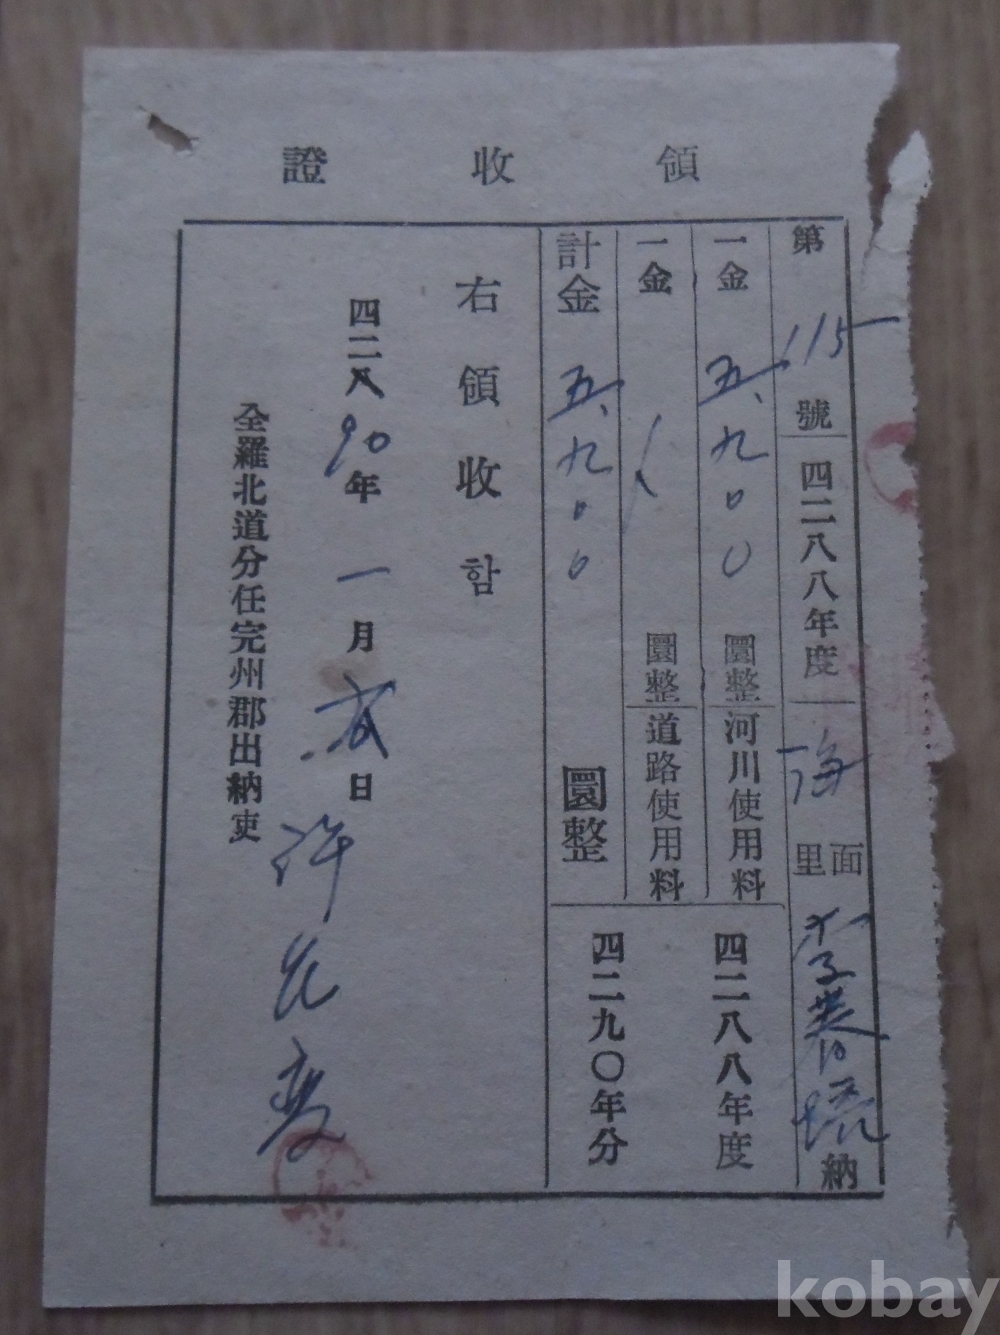 領收證
第115號 四二八八年度 海 里面 李 納
一金 五、九00 圜整 河川使用料
一金 圜整 道路使用料
四二八八年度
計金 五、九00 圜整
四二九〇年分
右領收함
四二八90年 一月 日
全羅北道分任完州郡出納吏
許
kobay